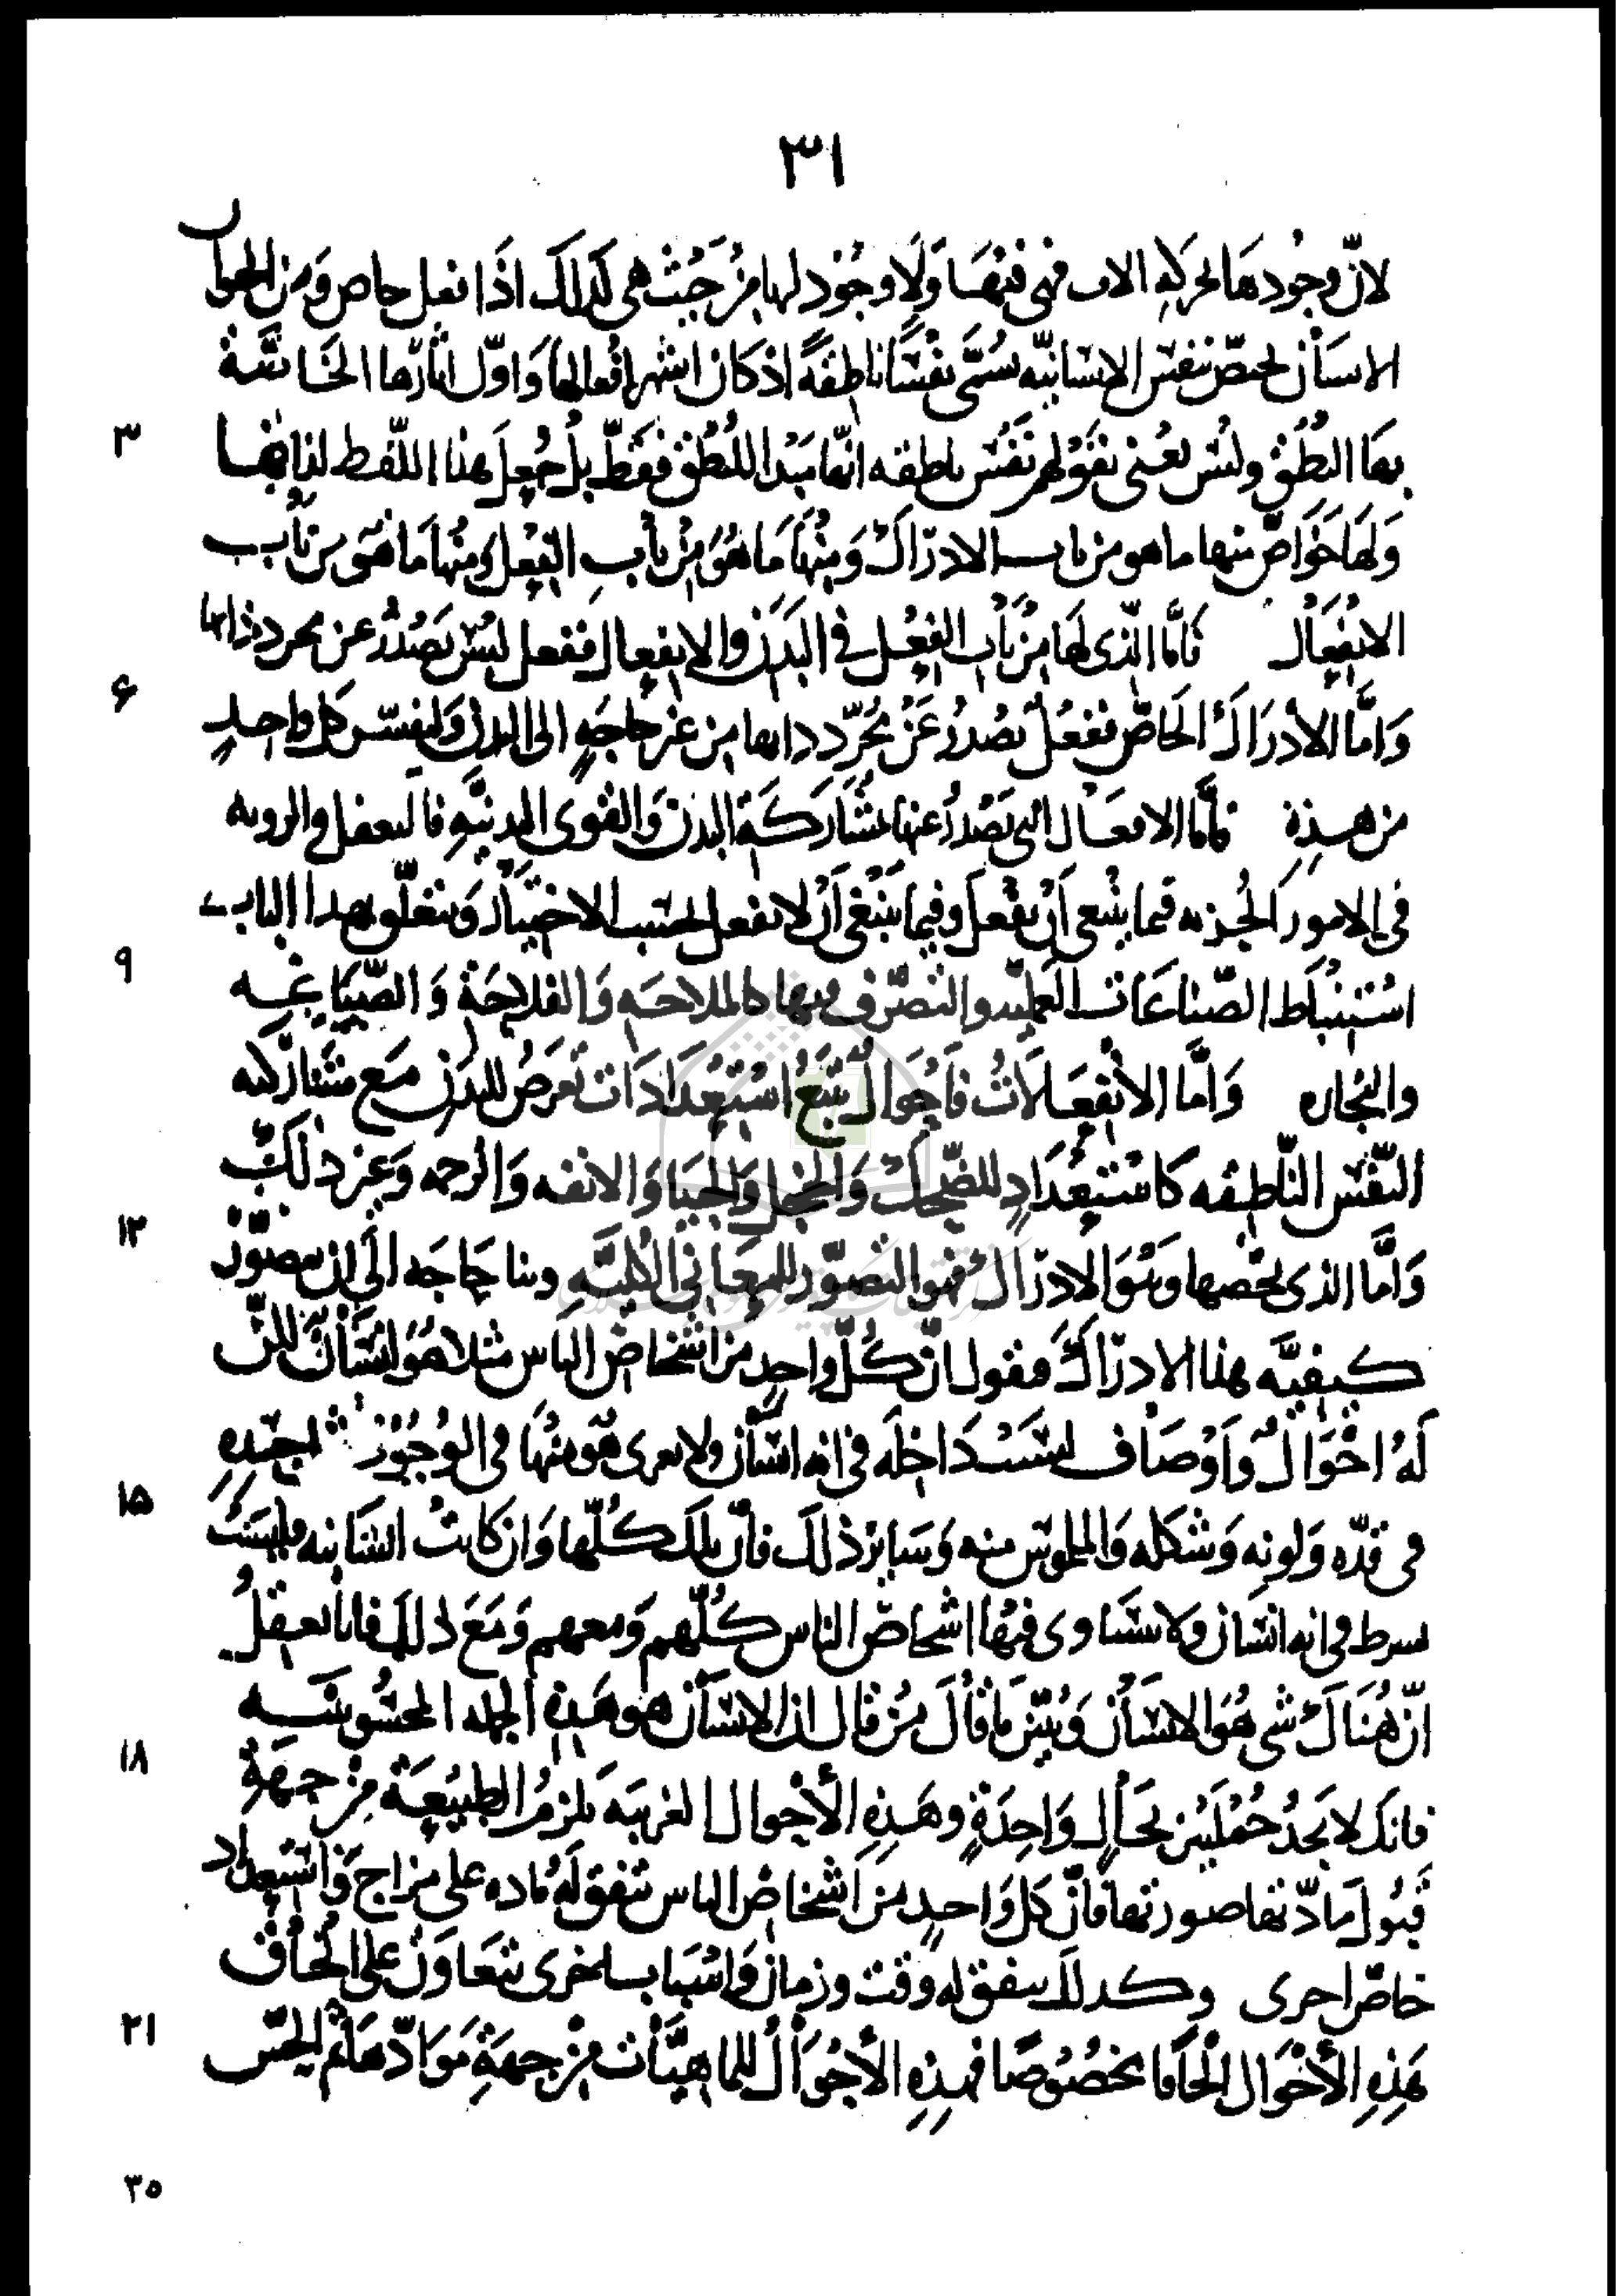 ٣١
لان وجودها لحركه الالات فهى فيها ولا وجود لها من حيث هى كذلك اذا بفعل خاص ومن الحيوان
الانسان يختص بنفس الانسانيه تسمى نفسا ناطقة اذ كان اشهر افعالها واول اثارها الخاصة
٣ بها النطق وليس يعنى بقولهم نفس ناطقه انها مبدا للنطق فقط بل جعل هذا اللفظ لذاتها
ولها خواص منها ما هو من باب الادراك ومنها ما هو من باب الفعل ومنها ما هو من باب
الانفعال فاما الذى لها من باب الفعل فى البدن والانفعال ففعل ليس يصدر عن مجرد ذاتها
۶ واما الادراك الخاص ففعل يصدر عن مجرد ذاتها من غير حاجه الى البدن ولنفسر كل واحد
من هذه فاما الافعال التى تصدر عنها بمشاركة البدن والقوى البدنيه فالتعقل والرويه
فى الامور الجزيه فيما ينبغى ان يفعل وفيما ينبغى ان لا يفعل بحسب الاختيار ويتعلق بهذا الباب
٩ استنباط الصناعات العمليه والتصرف فيها كالملاحه والفلاحة والصياغه
والنجاره واما الانفعالات فاحوال تتبع استعدادات تعرض للبدن مع مشاركه
النفس الناطقه كاستعداد للضحك والخجل والحيا والانفه والرحمه وغير ذلك
١٢ واما الذى يخصها وهو الادراك فهو التصور للمعانى الكليه وبنا حاجه الى ان نصور
كيفيه هذا الادراك فنقول ان كل واحد من اشخاص الناس مثلا هو انسان لكن
له احوال واوصاف ليست داخله فى انه انسان ولا يعرى هو منها فى الوجود مثل حده
١۵ فى قده ولونه وشكله والملموس منه وساير ذلك فان تلك كلها وان كانت انسانيه فليست
بشرط فى انه انسان ولا يتساوى فيها اشخاص الناس كلهم ومعهم ومع ذلك فانا نعقل
ان هناك شى هو الانسان وبئس ما قال من قال ان الانسان هو هذه الجمله المحسوسه
١٨ فانك لا تجد جملتين بحال واحدة وهذه الاحوال الغريبه تلزم الطبيعة من جهة
قبول مادتها صورتها فان كل واحد من اشخاص الناس تتفق له ماده على مزاج واستعداد
خاص اخرى وكذلك يتفق له وقت وزمان واسباب اخرى تتعاون على الحاق
٢١ هذه الاحوال الحاقا مخصوصا فهذه الاحوال للماهيات من جهة موادها ثم الحس
٣٥